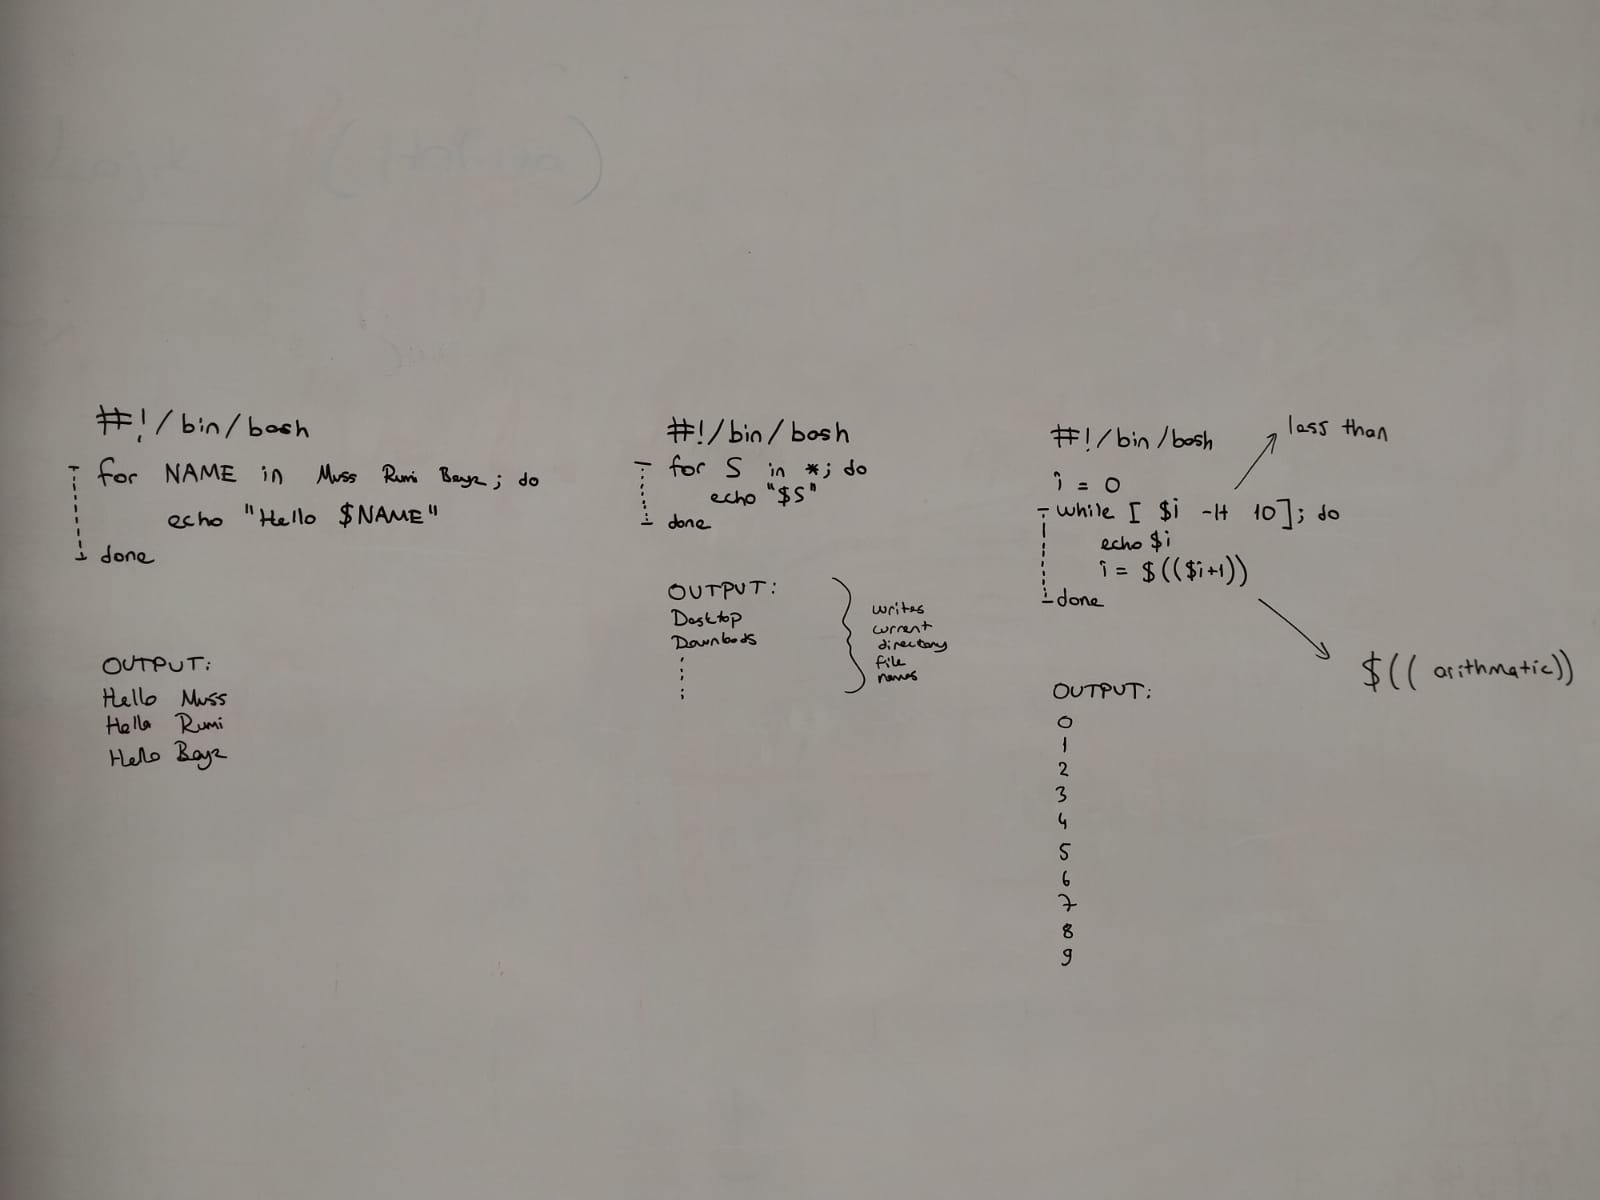 #!/bin/bash
for NAME in Muss Rumi Bayz; do
echo "Hello $NAME"
done
OUTPUT:
Hello Muss
Hello Rumi
Hello Bayz
#!/bin/bash
for S in *; do
echo "$S"
done
OUTPUT:
Desktop
Downloads
writes
current
directory
file
names
#!/bin/bash
i = 0
while [ $i -lt 10]; do
echo $i
i = $(($i+1))
done
less than
$(( arithmatic))
OUTPUT:
0
1
2
3
4
5
6
7
8
9